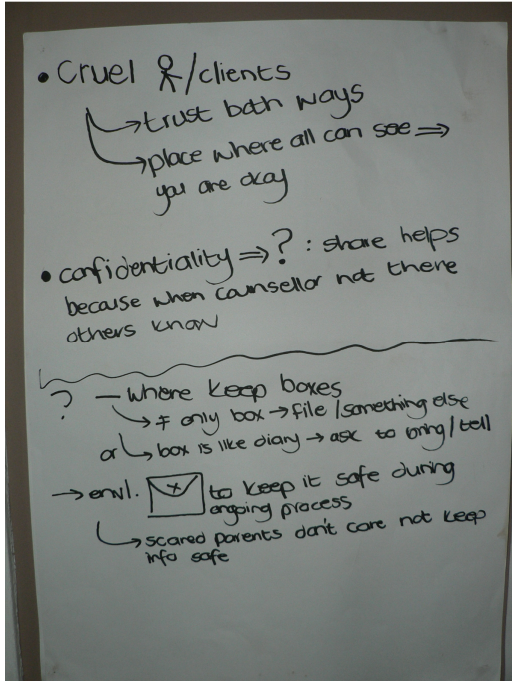 • Cruel /clients
→ trust both ways
→ place where all can see ⇒
you are okay
• confidentiality ⇒ ? : share helps
because when counsellor not there
others know
? — where keep boxes
→ ≠ only box → file / something else
or → box is like diary → ask to bring / tell
→ envl. to keep it safe during
ongoing process
→ scared parents don't care not keep
info safe